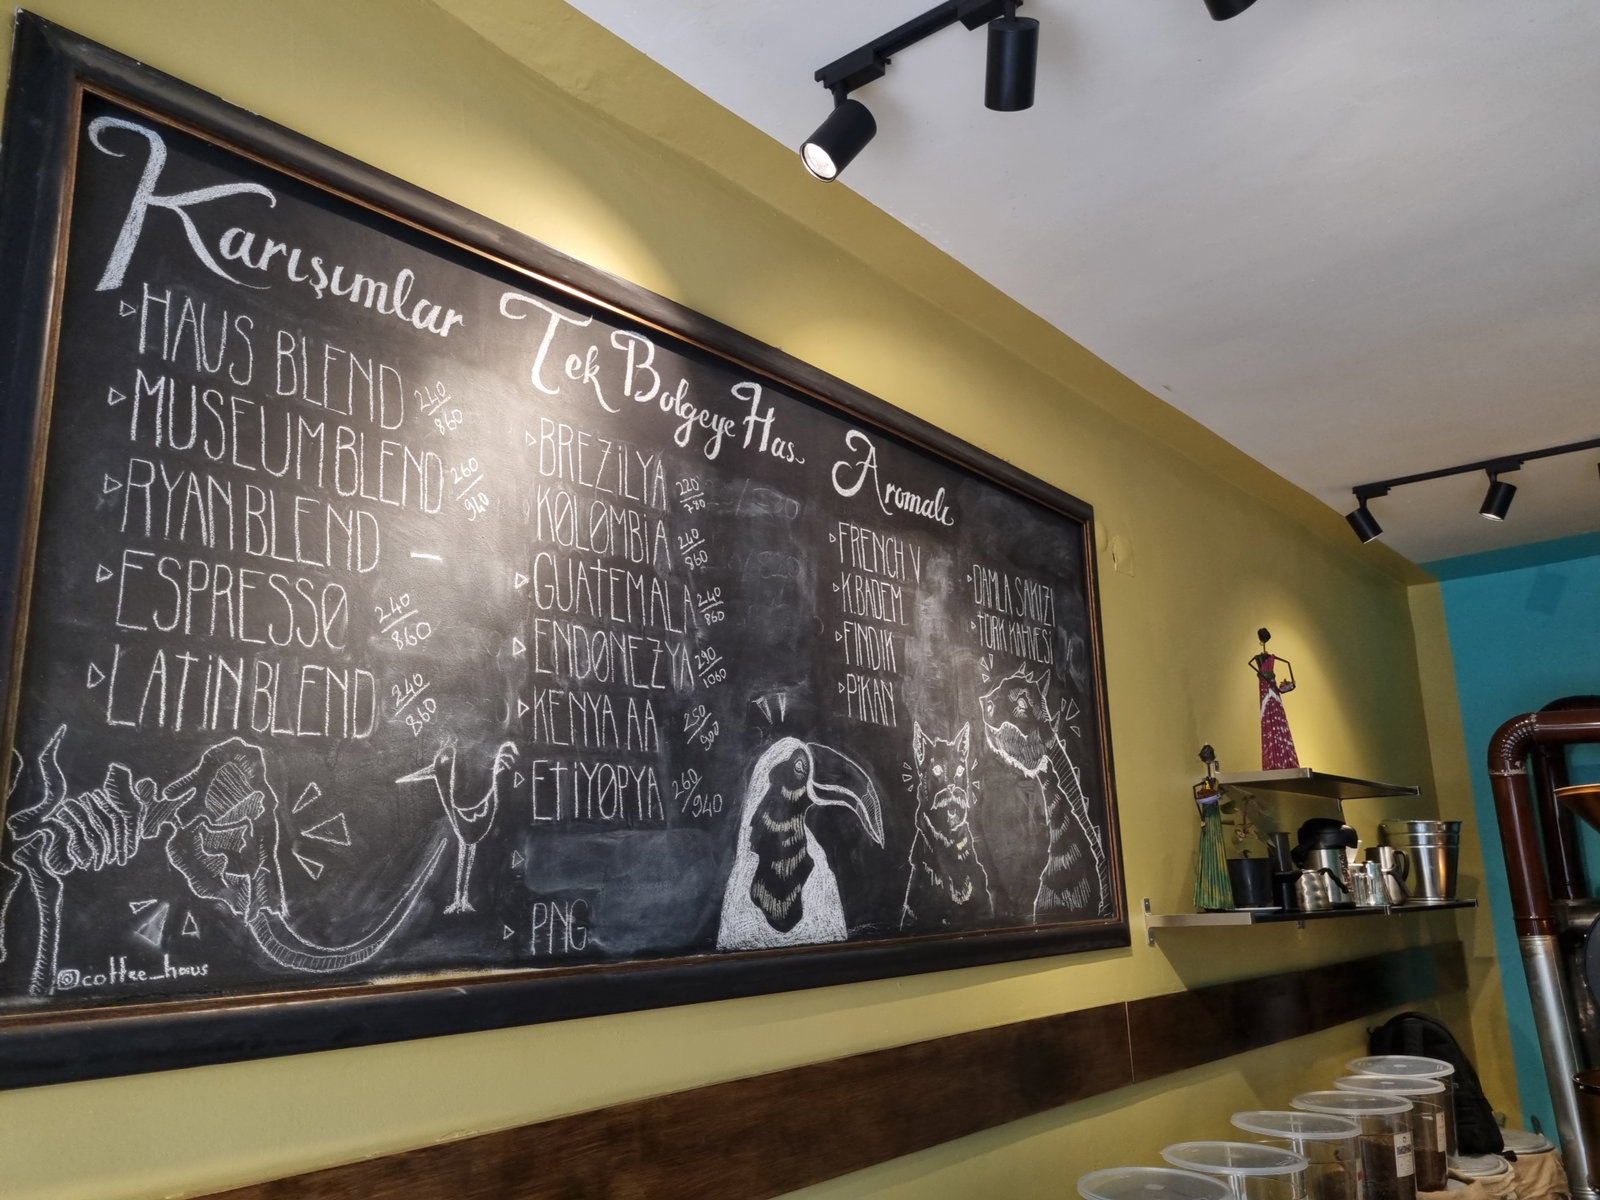 Karışımlar
▷ HAUS BLEND 240/860
▷ MUSEUM BLEND 260/940
▷ RYAN BLEND —
▷ ESPRESSØ 240/860
▷ LATiN BLEND 240/860
@coffee_haus
Tek Bolgeye Has
▷ BREZiLYA 220/780
KØLØMBiA 240/860
▷ GUATEMALA 240/860
▷ ENDØNEZYA 290/1060
▷ KENYA AA 250/900
▷ ETiYØPYA 260/940
▷
▷ PNG
Aromalı
▷ FRENCH V
▷ K.BADEM
▷ FINDIK
▷ PiKAN
▷ DAMLA SAKIZI
▷ TÜRK KAHVESİ